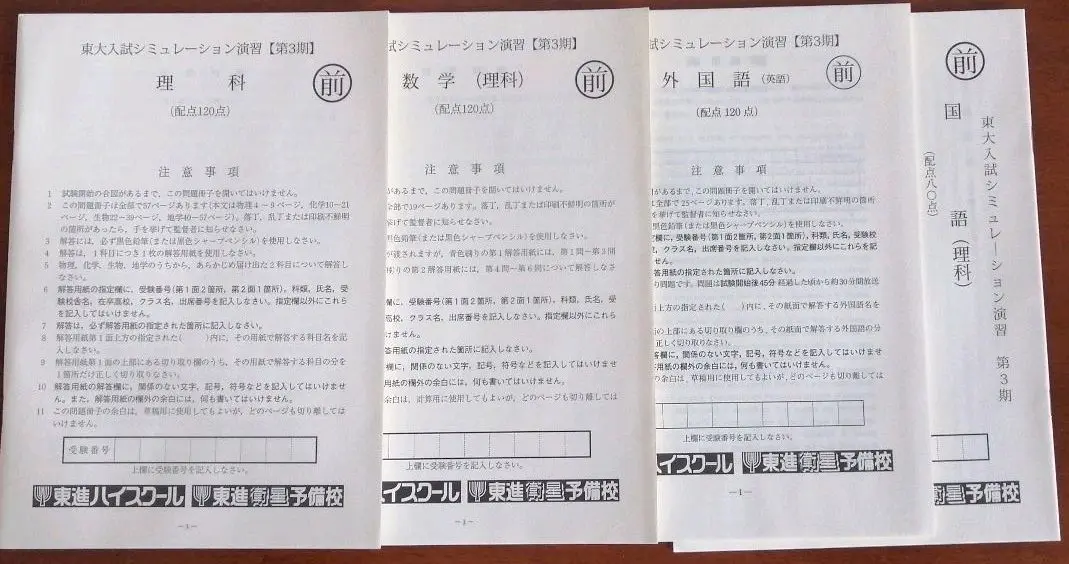 東大入試シミュレーション演習【第3期】
理 科
前
(配点120点)
注 意 事 項
1 試験開始の合図があるまで、この問題冊子を開いてはいけません。
2 この問題冊子は全部で57ページあります(本文は物理4〜9ページ、化学10〜21
ページ、生物22〜39ページ、地学40〜57ページ)。落丁、乱丁または印刷不鮮明
の箇所があったら、手を挙げて監督者に知らせなさい。
3 解答には、必ず黒色鉛筆(または黒色シャープペンシル)を使用しなさい。
4 解答は、1科目につき1枚の解答用紙を使用しなさい。
5 物理、化学、生物、地学のうちから、あらかじめ届け出た2科目について解答し
なさい。
6 解答用紙の指定欄に、受験番号(第1面2箇所、第2面1箇所)、科類、氏名、受
験校舎名、在卒高校、クラス名、出席番号を記入しなさい。指定欄以外にこれら
を記入してはいけません。
7 解答は、必ず解答用紙の指定された箇所に記入しなさい。
8 解答用紙第1面上方の指定された( )内に、その用紙で解答する科目名を記
入しなさい。
9 解答用紙第1面の上部にある切り取り欄のうち、その用紙で解答する科目の分を
1箇所だけ正しく切り取りなさい。
10 解答用紙の解答欄に、関係のない文字、記号、符号などを記入してはいけませ
ん。また、解答用紙の欄外の余白には、何も書いてはいけません。
11 この問題冊子の余白は、草稿用に使用してもよいが、どのページも切り離しては
いけません。
受験番号
上欄に受験番号を記入しなさい。
東進ハイスクール 東進衛星予備校
−1−
試シミュレーション演習【第3期】
数 学 (理科)
前
(配点120点)
注 意 事 項
があるまで、この問題冊子を開いてはいけません。
全部で19ページあります。落丁、乱丁または印刷不鮮明の箇所が
挙げて監督者に知らせなさい。
黒色鉛筆(または黒色シャープペンシル)を使用しなさい。
が渡されますが、青色刷りの第1解答用紙には、第1問〜第3問
刷りの第2解答用紙には、第4問〜第6問について解答しなさ
欄に、受験番号(第1面2箇所、第2面1箇所)、科類、氏名、受
高校、クラス名、出席番号を記入しなさい。指定欄以外にこれら
けません。
答用紙の指定された箇所に記入しなさい。
欄に、関係のない文字、記号、符号などを記入してはいけませ
用紙の欄外の余白には、何も書いてはいけません。
余白は、計算用に使用してもよいが、どのページも切り離しては
上欄に受験番号を記入しなさい。
ハイスクール 東進衛星予備校
−1−
試シミュレーション演習【第3期】
外 国 語 (英語)
前
(配点120点)
注 意 事 項
があるまで、この問題冊子を開いてはいけません。
全部で25ページあります。落丁、乱丁または印刷不鮮明の箇所
を挙げて監督者に知らせなさい。
黒色鉛筆(または黒色シャープペンシル)を使用しなさい。
定欄に、受験番号(第1面2箇所、第2面1箇所)、科類、氏名、受験校
、クラス名、出席番号を記入しなさい。指定欄以外にこれらを記
ません。
答用紙の指定された箇所に記入しなさい。
り問題です。問題は試験開始後45分経過した頃から約30分間放送
上方の指定された( )内に、その紙面で解答する外国語名を
の上部にある切り取り欄のうち、その紙面で解答する外国語の分
正しく切り取りなさい。
欄に、関係のない文字、記号、符号などを記入してはいけませ
用紙の欄外の余白には、何も書いてはいけません。
余白は、草稿用に使用してもよいが、どのページも切り離しては
上欄に受験番号を記入しなさい。
イスクール 東進衛星予備校
−1−
東大入試シミュレーション演習 第3期
国 語 (理科)
前
(配点八〇点)
衛星予備校